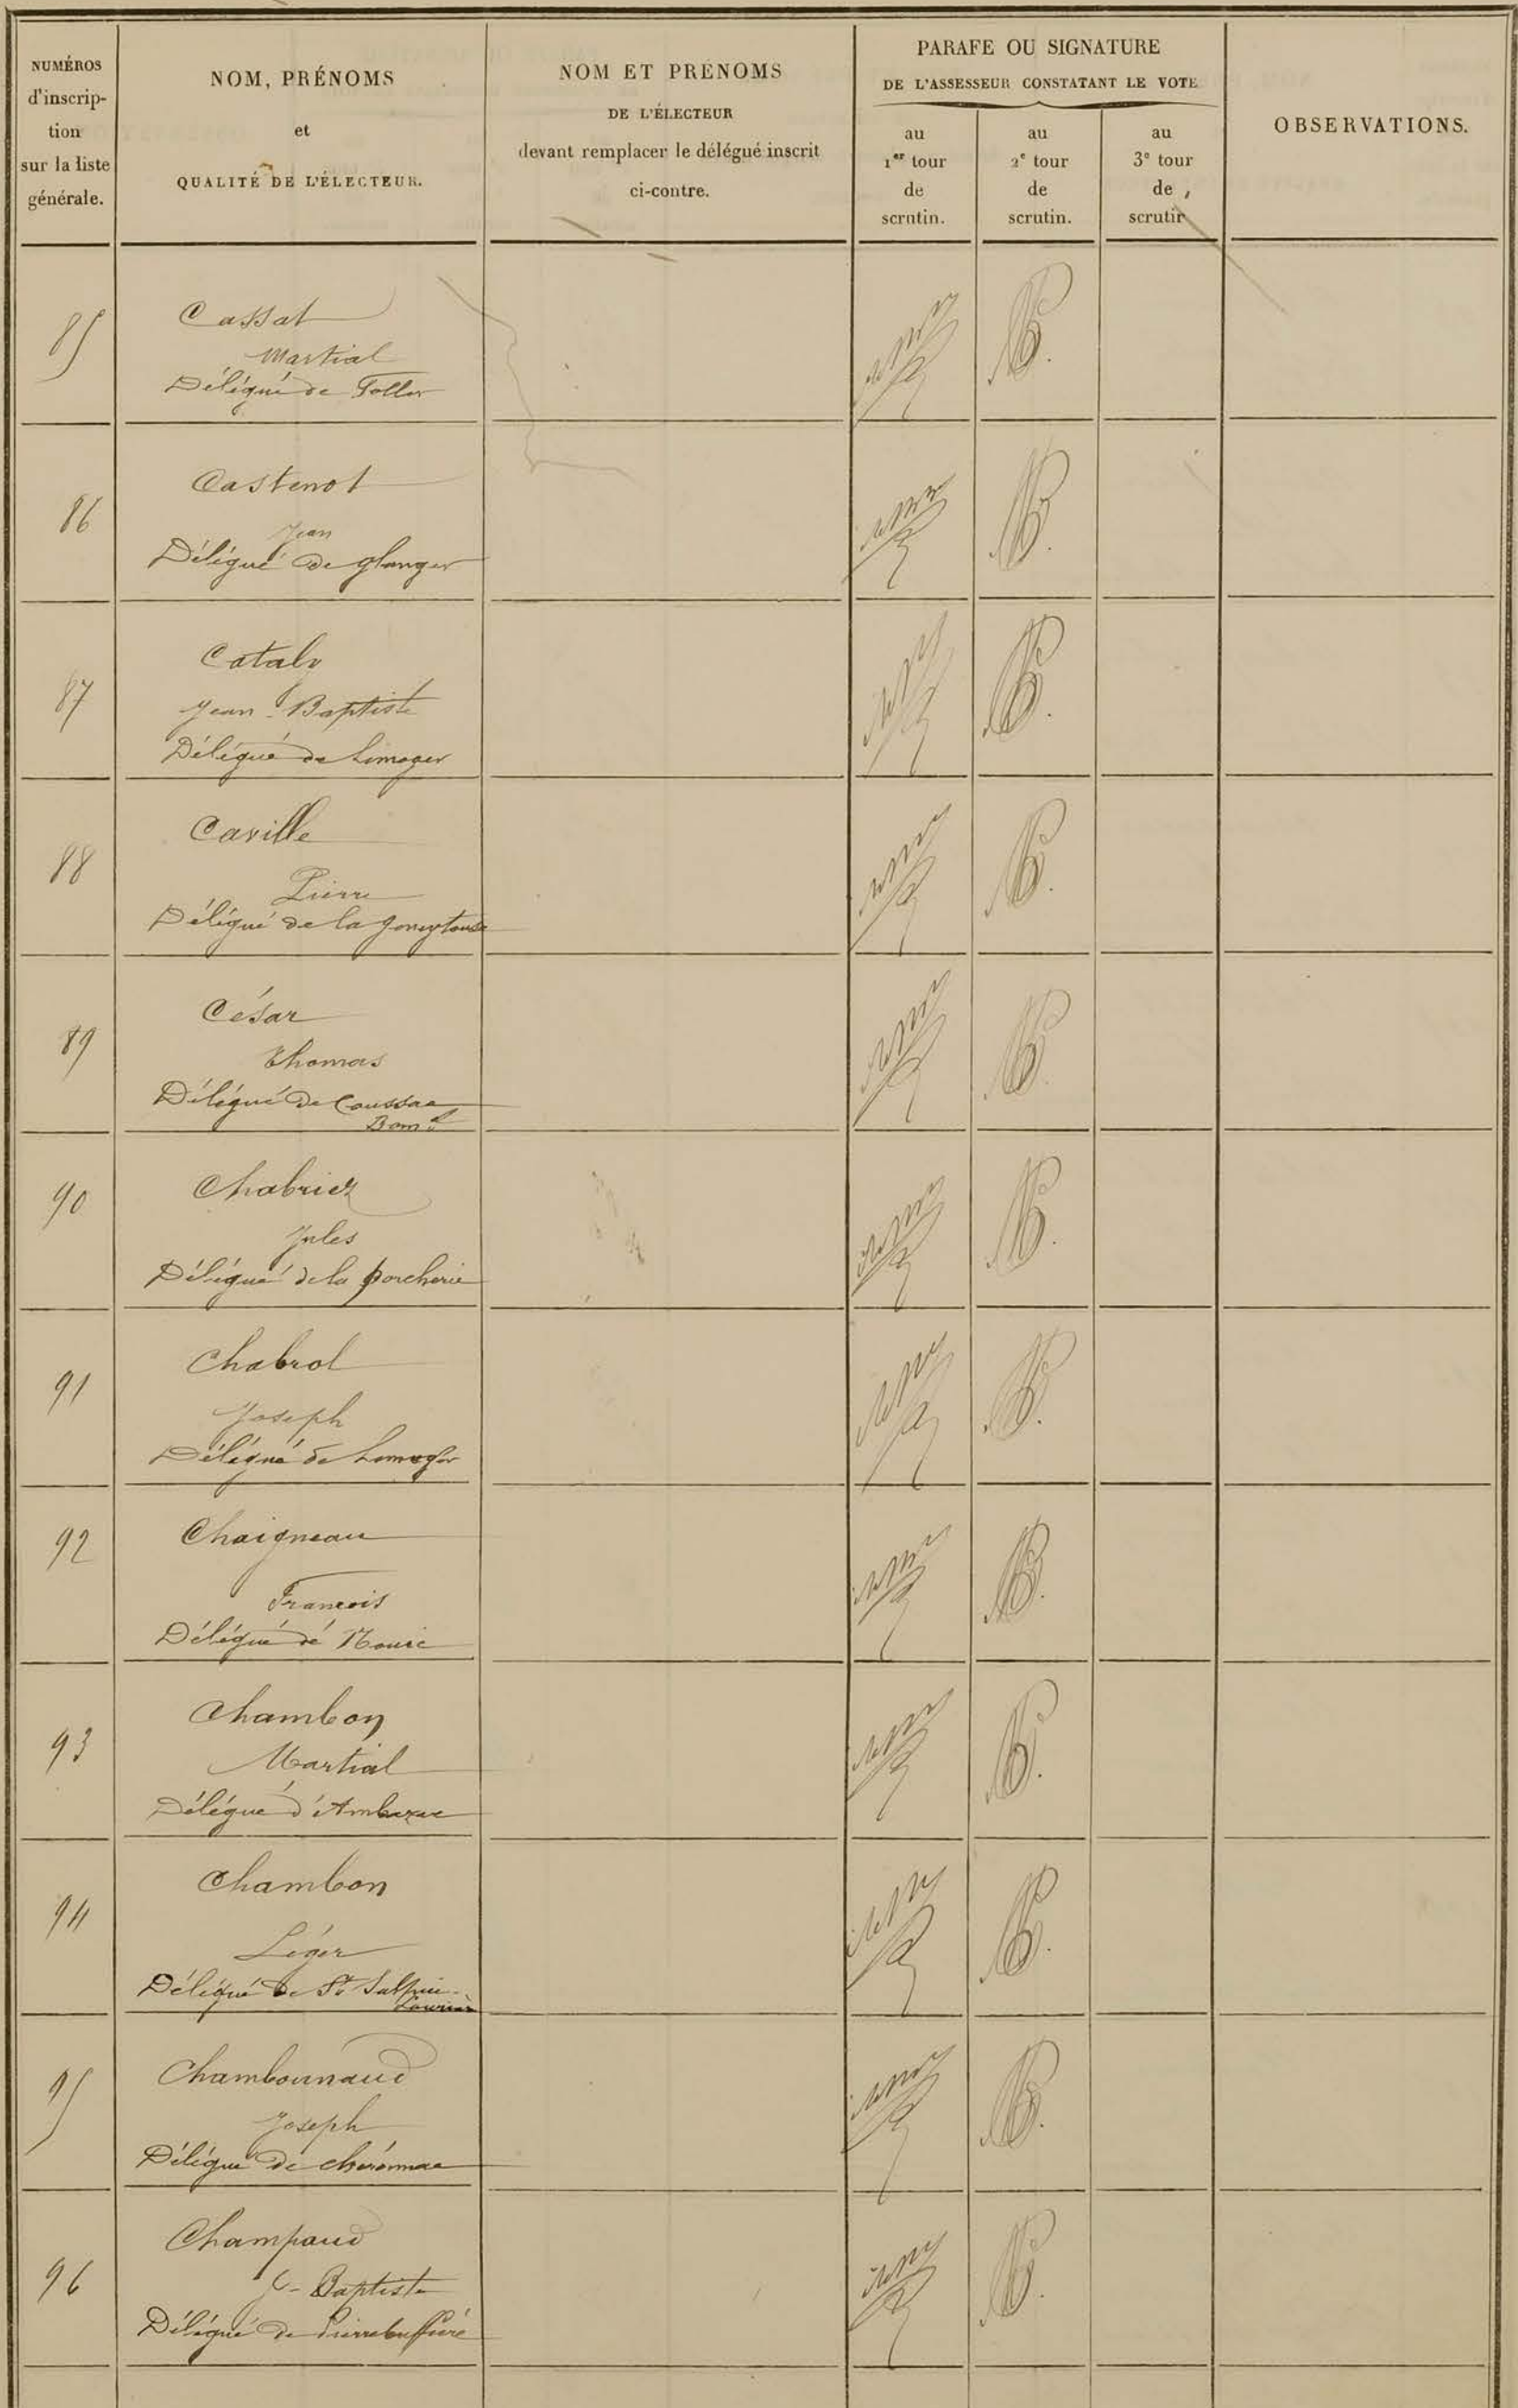 NUMÉROS
d'inscrip-
tion
sur la liste
générale.
NOM, PRÉNOMS
et
QUALITÉ DE L'ÉLECTEUR.
NOM ET PRENOMS
DE L'ÉLECTEUR
devant remplacer le délégué inscrit
ci-contre.
PARAFE OU SIGNATURE
DE L'ASSESSEUR CONSTATANT LE VOTE
au
1er tour
de
scrutin.
au
2e tour
de
scrutin.
au
3e tour
de
scrutin
OBSERVATIONS.
85
Cassat
Martial
Délégué de Folles
86
Castenot
Jean
Délégué de glanges
87
Cataly
Jean-Baptiste
Délégué de Limoges
88
Caville
Pierre
Délégué de la Joneytouse
89
César
Thomas
Délégué de Coussac
Bonal
90
Chabriez
Jules
Délégué de la porcherie
91
Chabrol
Joseph
Délégué de Limoges
92
Chaigneau
Francois
Délégué de Nouic
93
Chambon
Martial
Délégué d'Ambazac
94
Chambon
Léger
Délégué de St Sulpice-
Laurière
95
Chambounaud
Joseph
Délégué de cheronnac
96
Champaud
J- Baptiste
Délégué de Pierrebuffière